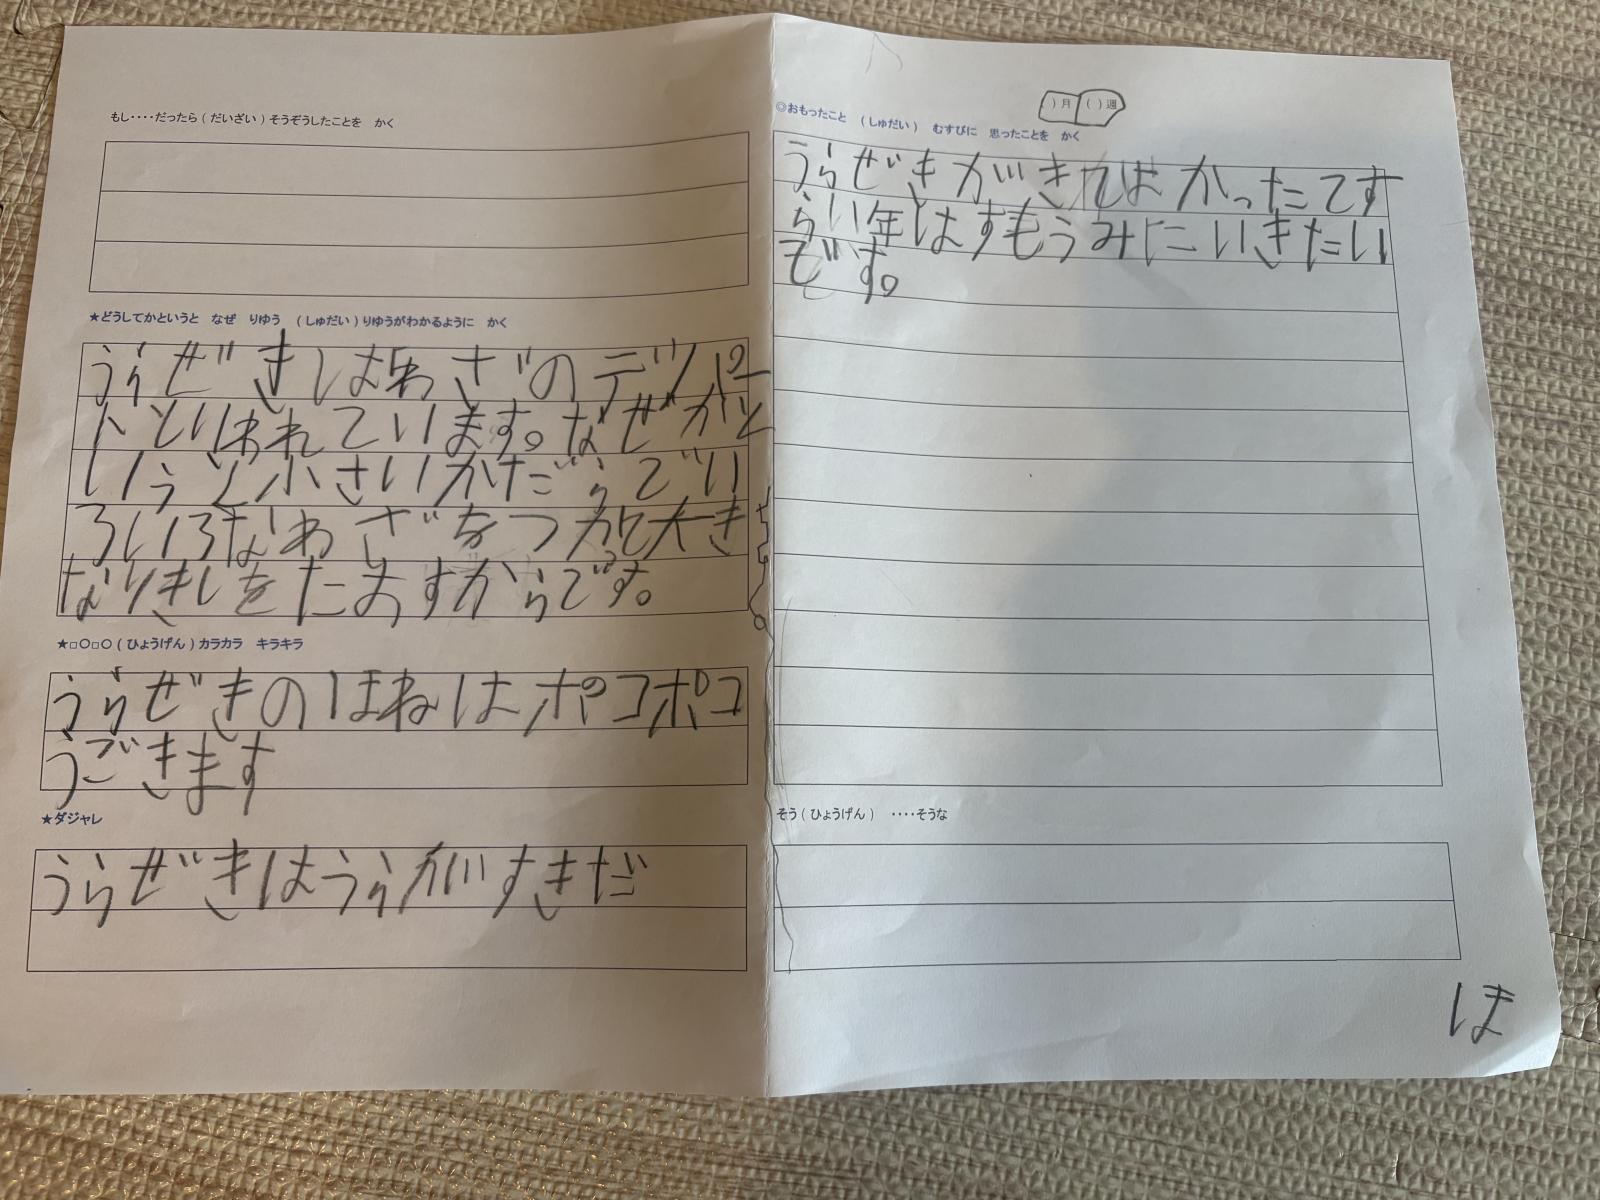 もし‥‥だったら(だいざい)そうぞうしたことを かく
★どうしてかというと なぜ りゆう (しゅだい)りゆうがわかるように かく
うらぜきはわざのデパー
トといわれています。なぜかと
いうと小さいかだらでい
ろいろなわざをつかって大き
なりきしをたおすからです。
★□〇□〇(ひょうげん)カラカラ キラキラ
うらぜきのほねはポコポコ
うごきます
★ダジャレ
うらぜきはうらがすきだ
)月 ( )週
◎おもったこと (しゅだい) むすびに 思ったことを かく
うらぜきがきればかったてす
らい年はすもうみにいきたい
です。
そう(ひょうげん) ‥‥そうな
ほ